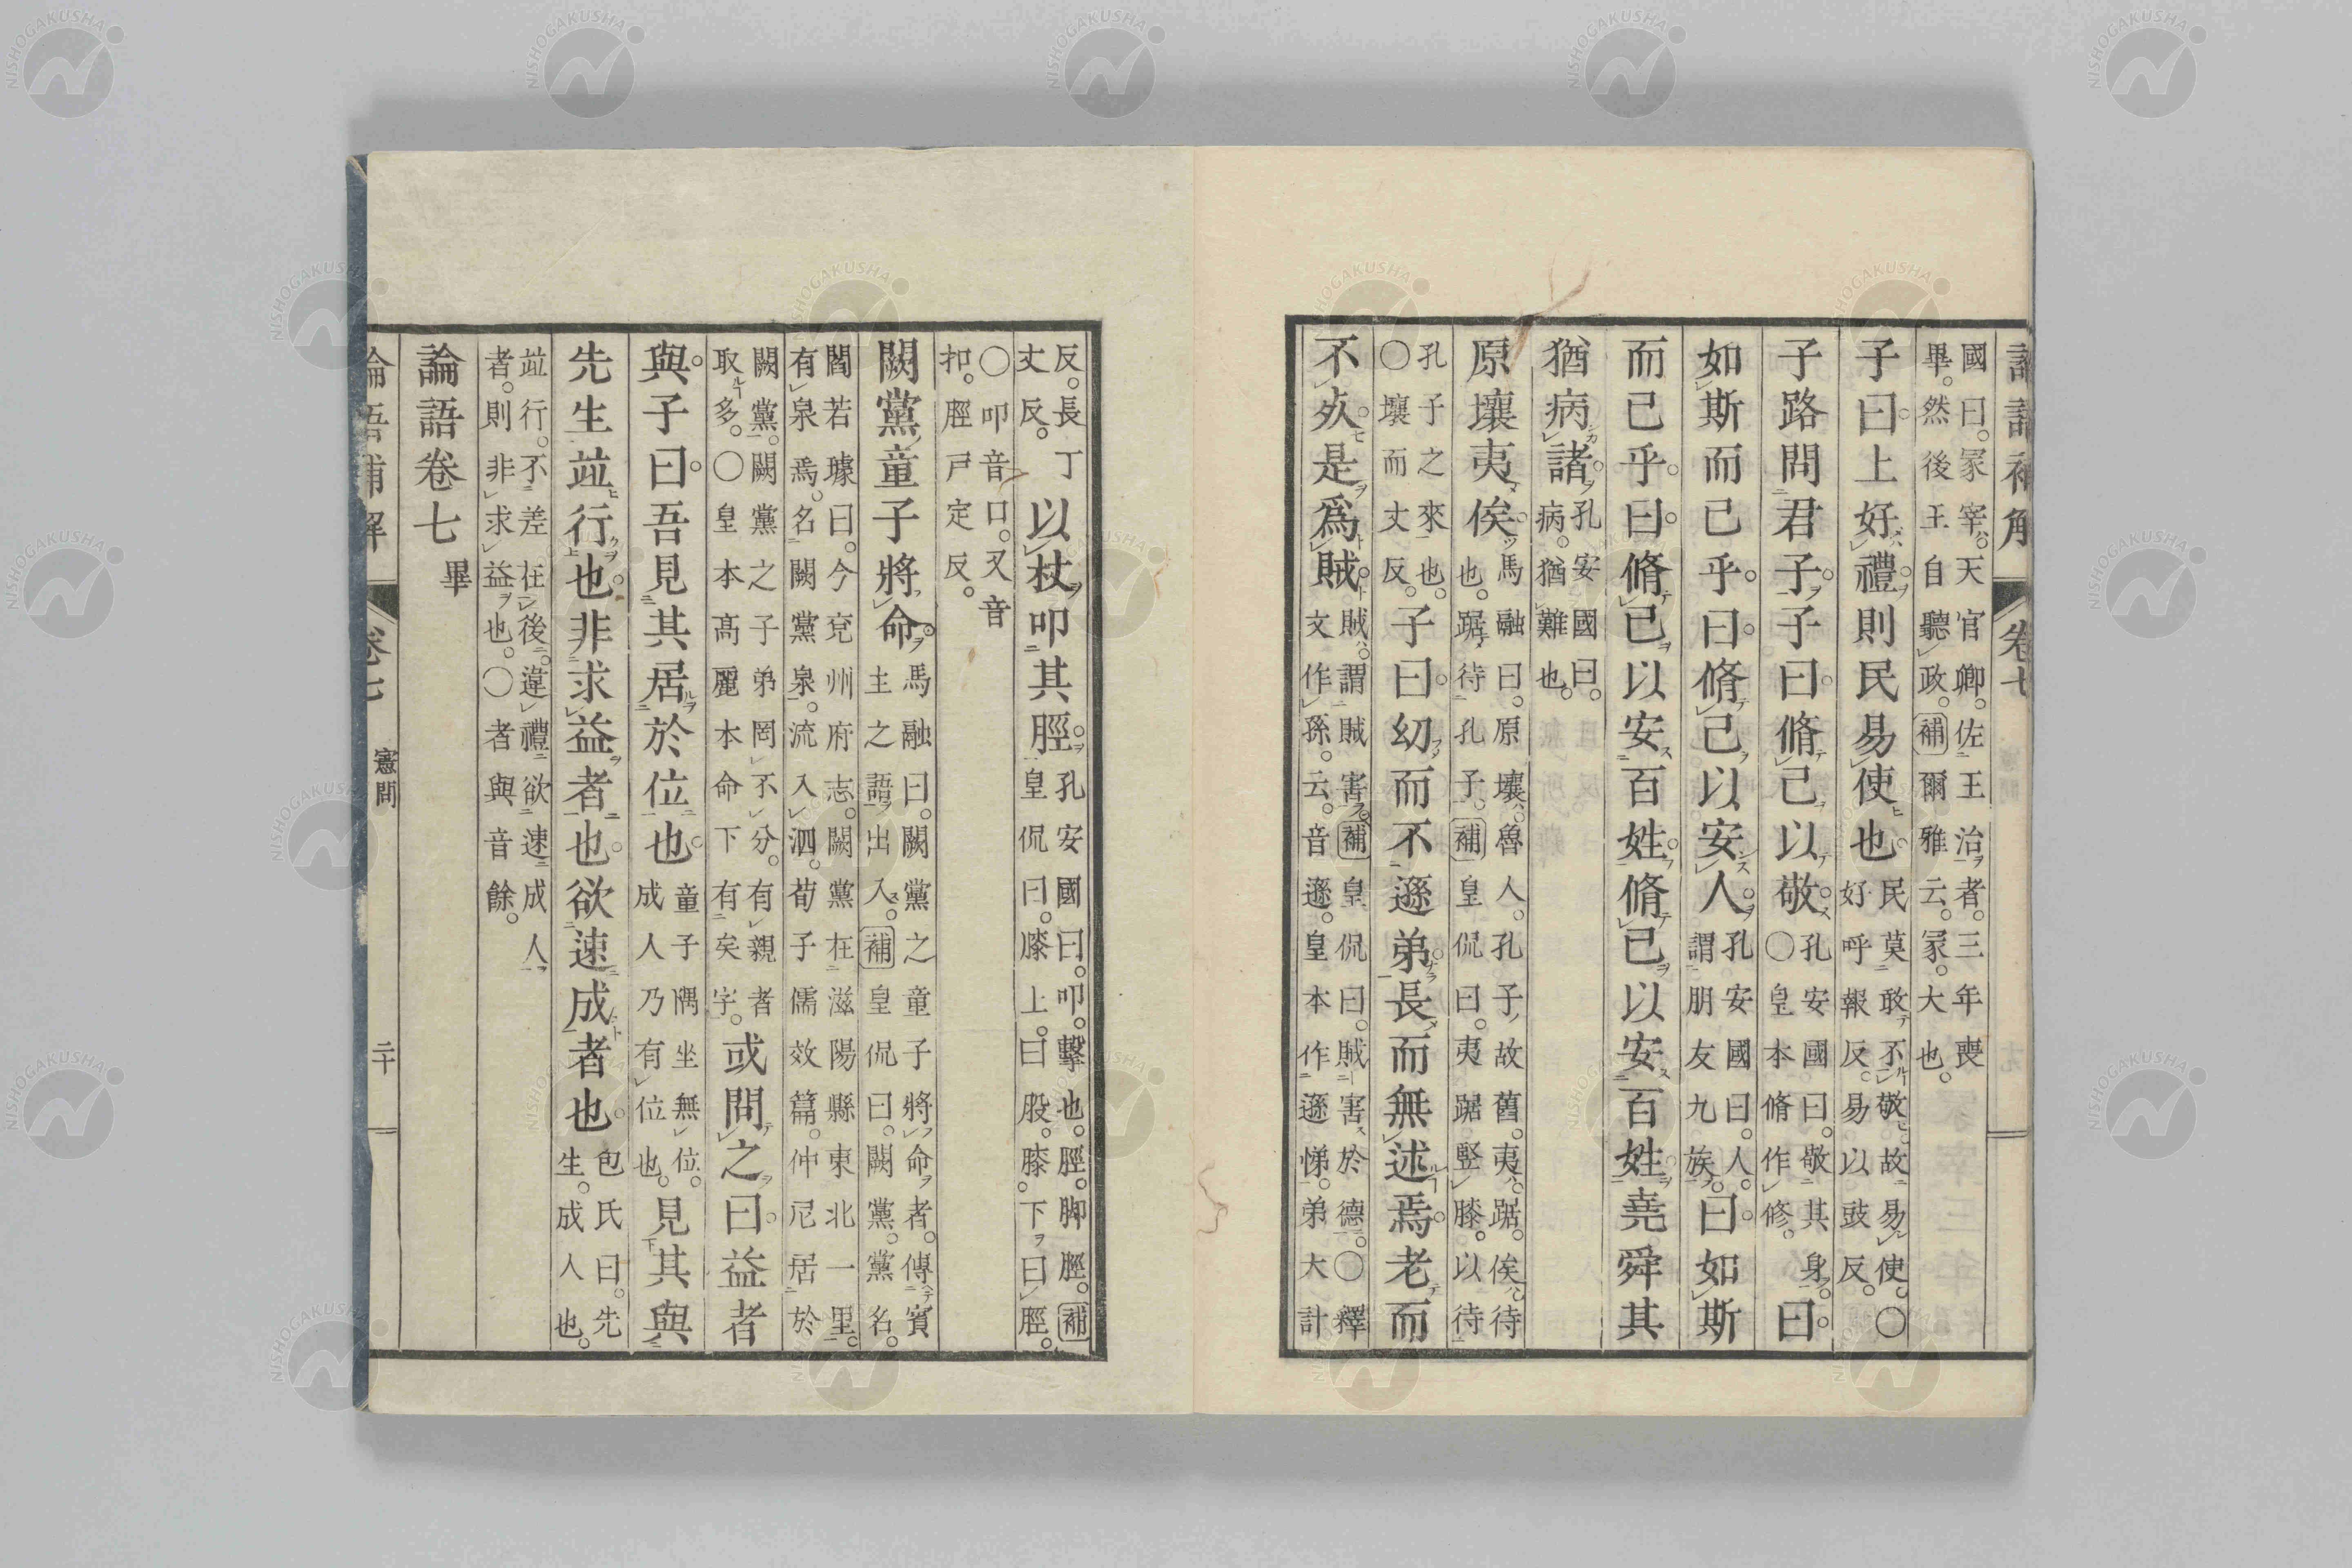 國曰。冢宰。天官卿。佐王治者。三年喪
畢。然後王自聽政。補爾雅云。冢。大也。
子曰上好禮則民易使也
民莫敢不敬。故易使。〇
好呼報反。易以豉反。
子路問君子子曰脩己以敬
孔安國曰。敬其身。
〇皇本脩作修。
曰
如斯而已乎曰脩己以安人
孔安國曰。人。
謂朋友九族。
曰如斯
而已乎曰脩己以安百姓脩己以安百姓堯舜其
猶病諸
孔安國曰。
病。猶難也。
原壤夷俟
馬融曰。原壤。魯人。孔子故舊。夷。踞。俟。待
也。踞待孔子。補皇侃曰。夷踞豎膝。以待
孔子之來也。
〇壤而丈反。
子曰幼而不遜弟長而無述焉老而
不死是爲賊
賊。謂賊害。補皇侃曰。賊害於德。〇釋
文作孫。云。音遜。皇本作遜悌。弟大計
反。長丁
丈反。
以杖叩其脛
孔安國曰。叩。擊也。脛。脚脛。補
皇侃曰。膝上。曰股。膝。下曰脛。
〇叩音口。又音
扣。脛戸定反。
闕黨童子將命
馬融曰。闕黨之童子將命者。傳賓
主之語出入。補皇侃曰。闕黨。黨名。
閻若璩曰。今兗州府志。闕黨在滋陽縣東北一里。
有泉焉。名闕黨泉。流入泗。荀子儒效篇。仲尼居於
闕黨。闕黨之子弟罔不分。有親者
取多。〇皇本高麗本命下有矣字。
或問之曰益者
與子曰吾見其居於位也
童子隅坐無位。
成人乃有位也。
見其與
先生並行也非求益者也欲速成者也
包氏曰。先
生。成人也。
並行。不差在後。違禮欲速成人
者。則非求益也。〇者與音餘。
論語卷七 畢
憲問
二十